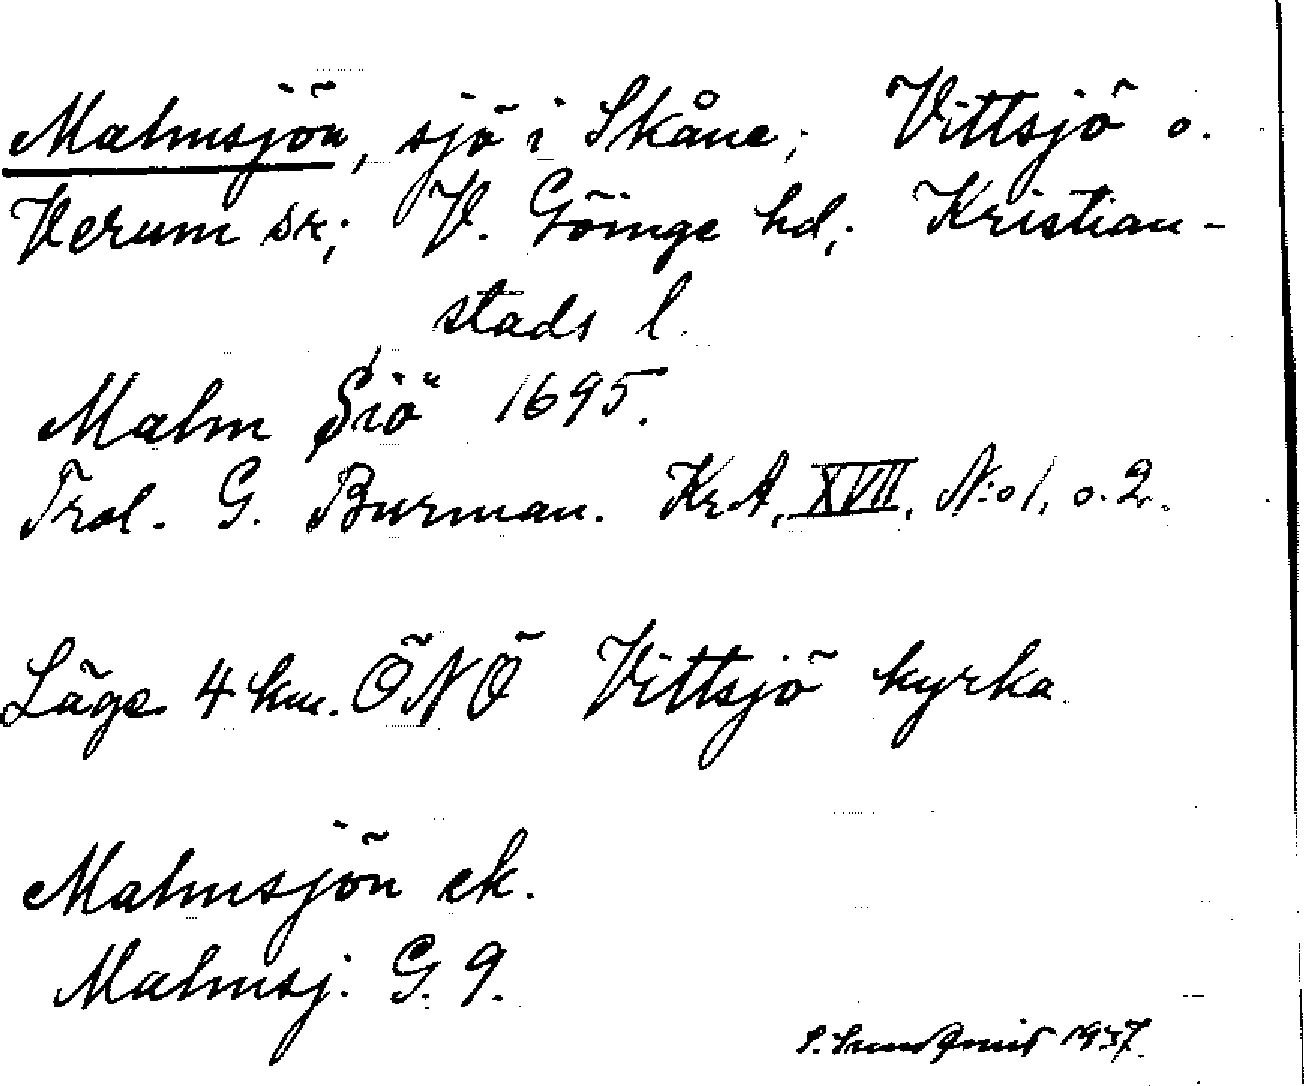 Malmsjön, sjö i Skåne; Vittsjö o.
Verum sn; V. Göinge hd; Kristian-
stads l.
Malm Siö 1695.
Trol. G. Burman. KrA, XVII, N:o 1, o. 2.
Läge 4 km. ÖNÖ Vittsjö kyrka.
Malmsjön ek.
Malmsj. G. 9.
1937